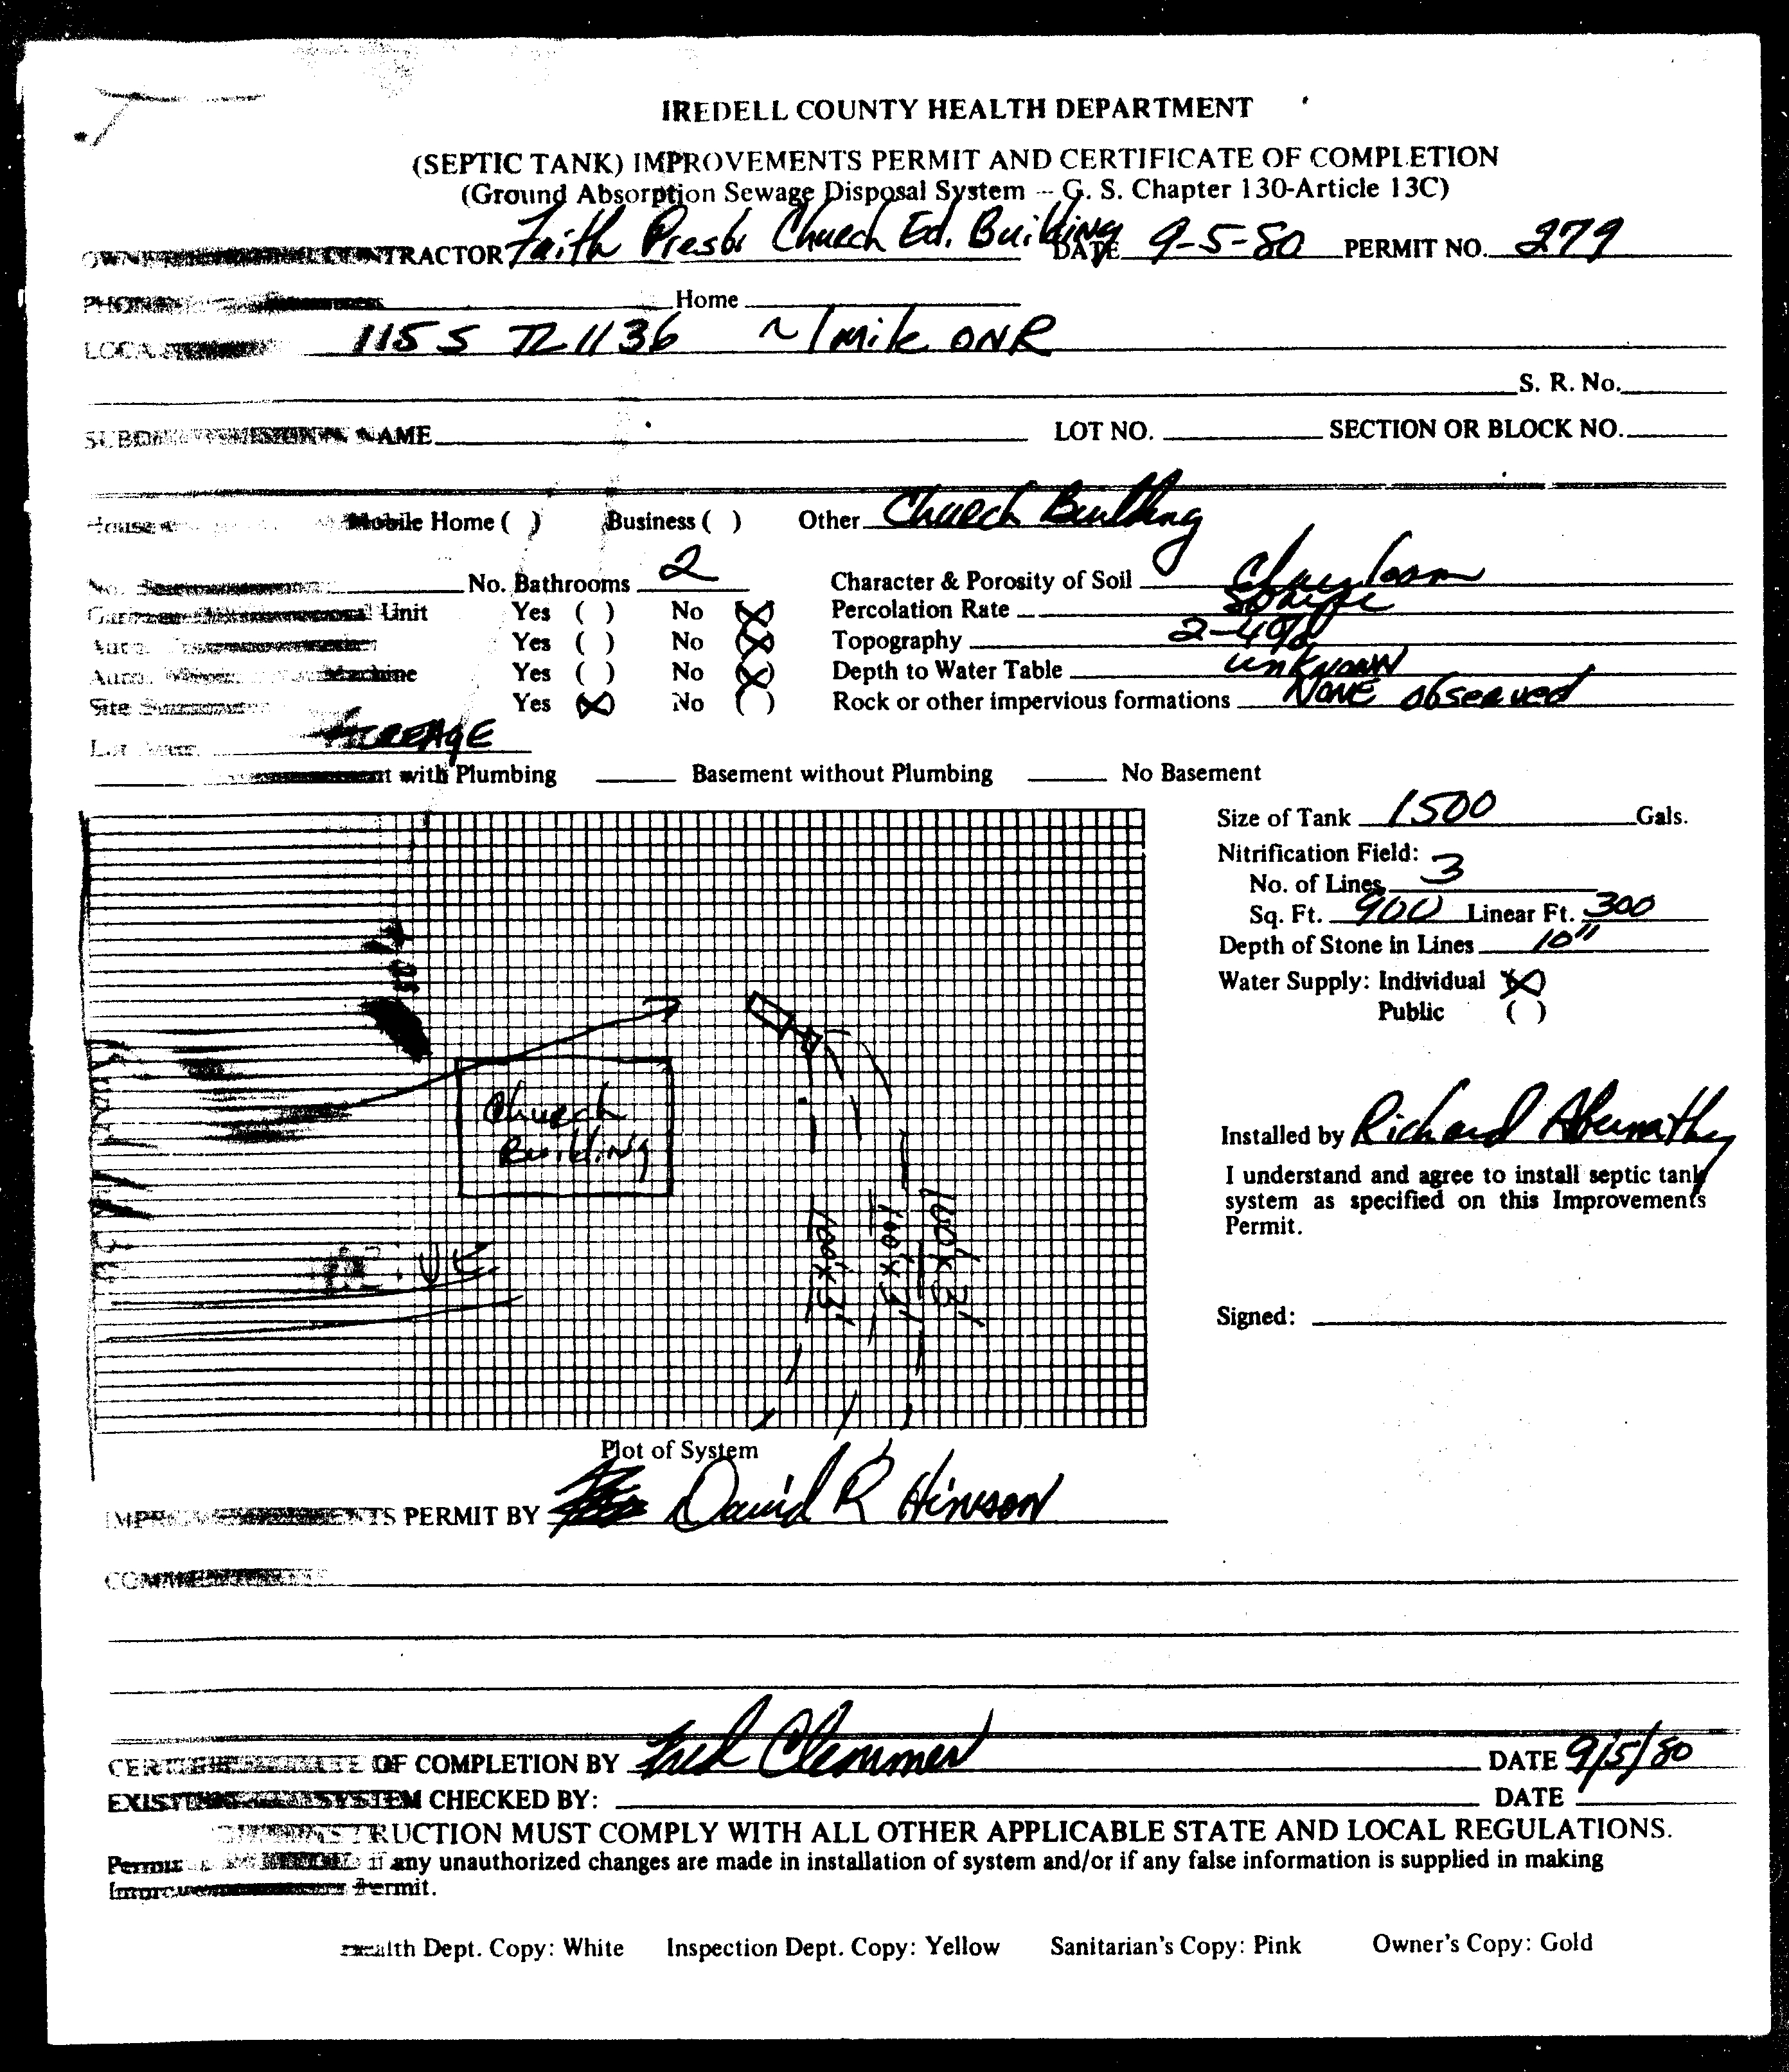 IREDELL COUNTY HEALTH DEPARTMENT
(SEPTIC TANK) IMPROVEMENTS PERMIT AND CERTIFICATE OF COMPLETION
(Ground Absorption Sewage Disposal System -- G. S. Chapter 130-Article 13C)
CONTRACTOR Faith Presb. Church Ed. Building DATE 9-5-80 PERMIT NO. 279
Home
115 S TL 1136 ~1 mile ON R
S. R. No.
NAME LOT NO. SECTION OR BLOCK NO.
House Mobile Home ( ) Business ( ) Other Church Building
No. Bathrooms 2 Character & Porosity of Soil Clay loam
Unit Yes ( ) No (X) Percolation Rate
Yes ( ) No (X) Topography 2-4%
Machine Yes ( ) No (X) Depth to Water Table unknown
Site Yes (X) No ( ) Rock or other impervious formations NONE observed
ACREAGE
with Plumbing Basement without Plumbing No Basement
Size of Tank 1500 Gals.
Nitrification Field:
No. of Lines 3
Sq. Ft. 900 Linear Ft. 300
Depth of Stone in Lines 10"
Water Supply: Individual (X)
Public ( )
Church
Building
100' x 3'
100' x 3'
100' x 3'
Installed by Richard Abernathy
I understand and agree to install septic tank
system as specified on this Improvements
Permit.
Signed:
Plot of System
PERMIT BY David R Hinson
OF COMPLETION BY Fred Clemmer DATE 9/5/80
EXISTING SYSTEM CHECKED BY: DATE
CONSTRUCTION MUST COMPLY WITH ALL OTHER APPLICABLE STATE AND LOCAL REGULATIONS.
Permit if any unauthorized changes are made in installation of system and/or if any false information is supplied in making
Permit.
Health Dept. Copy: White Inspection Dept. Copy: Yellow Sanitarian's Copy: Pink Owner's Copy: Gold